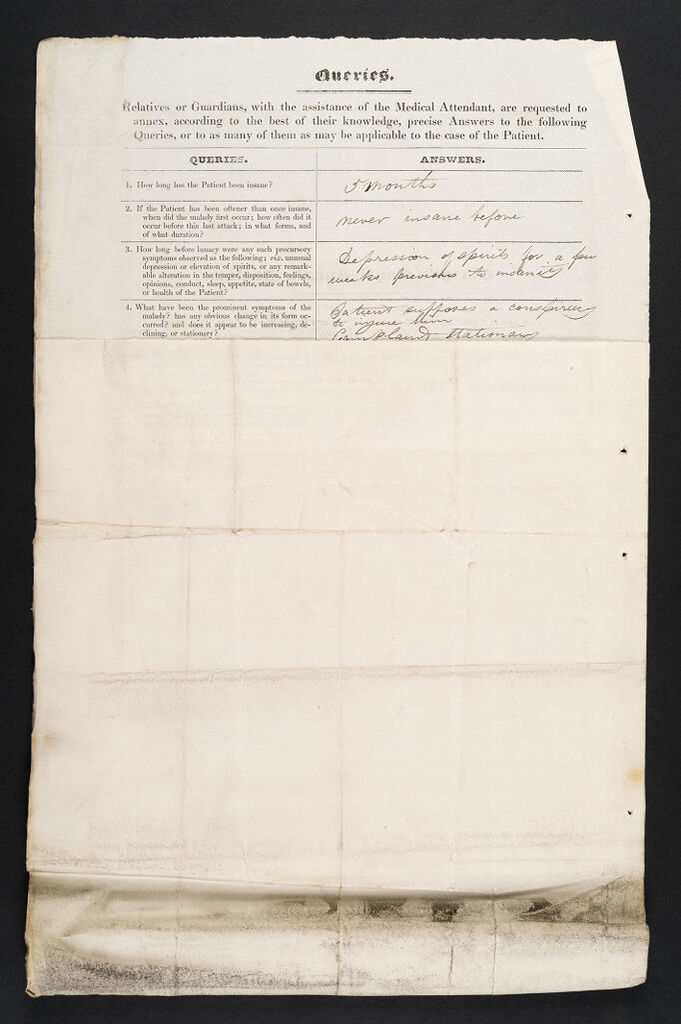 Queries.
Relatives or Guardians, with the assistance of the Medical Attendant, are requested to
annex, according to the best of their knowledge, precise Answers to the following
Queries, or to as many of them as may be applicable to the case of the Patient.
QUERIES.
ANSWERS.
1. How long has the Patient been insane?
5 months
2. If the Patient has been oftener than once insane,
when did the malady first occur; how often did it
occur before this last attack; in what forms, and
of what duration?
never insane before
3. How long before lunacy were any such precursory
symptoms observed as the following; viz. unusual
depression or elevation of spirits, or any remark-
able alteration in the temper, disposition, feelings,
opinions, conduct, sleep, appetite, state of bowels,
or health of the Patient?
Depression of spirits for a few
weeks previous to insanity
4. What have been the prominent symptoms of the
malady? has any obvious change in its form oc-
curred? and does it appear to be increasing, de-
clining, or stationary?
Patient supposes a conspiracy
to injure him
Complaint stationary